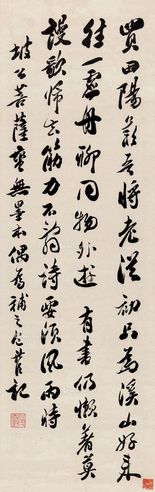 買田陽羨吾將老從初只為溪山好来
往一虛舟聊同物外遊有書仍懶著莫
謾歌歸去筋力不辭詩要須風雨時
坡公菩薩蠻無墨本偶為補之記